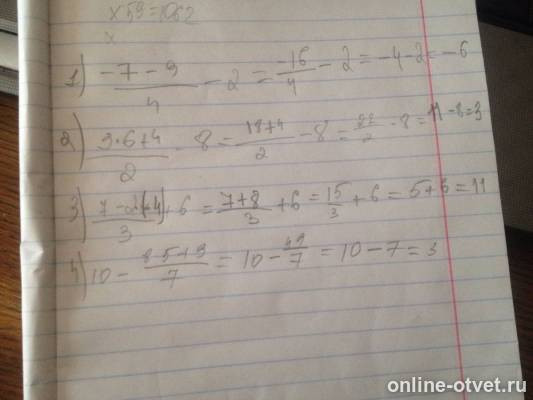 x 59 = 1062
x
1) (-7 - 9)/4 - 2 = -16/4 - 2 = -4 - 2 = -6
2) (3·6+4)/2 - 8 = (18+4)/2 - 8 = 22/2 - 8 = 11 - 8 = 3
3) (7-2(-4))/3 + 6 = (7+8)/3 + 6 = 15/3 + 6 = 5 + 6 = 11
4) 10 - (8·5+9)/7 = 10 - 49/7 = 10 - 7 = 3
online-otvet.ru